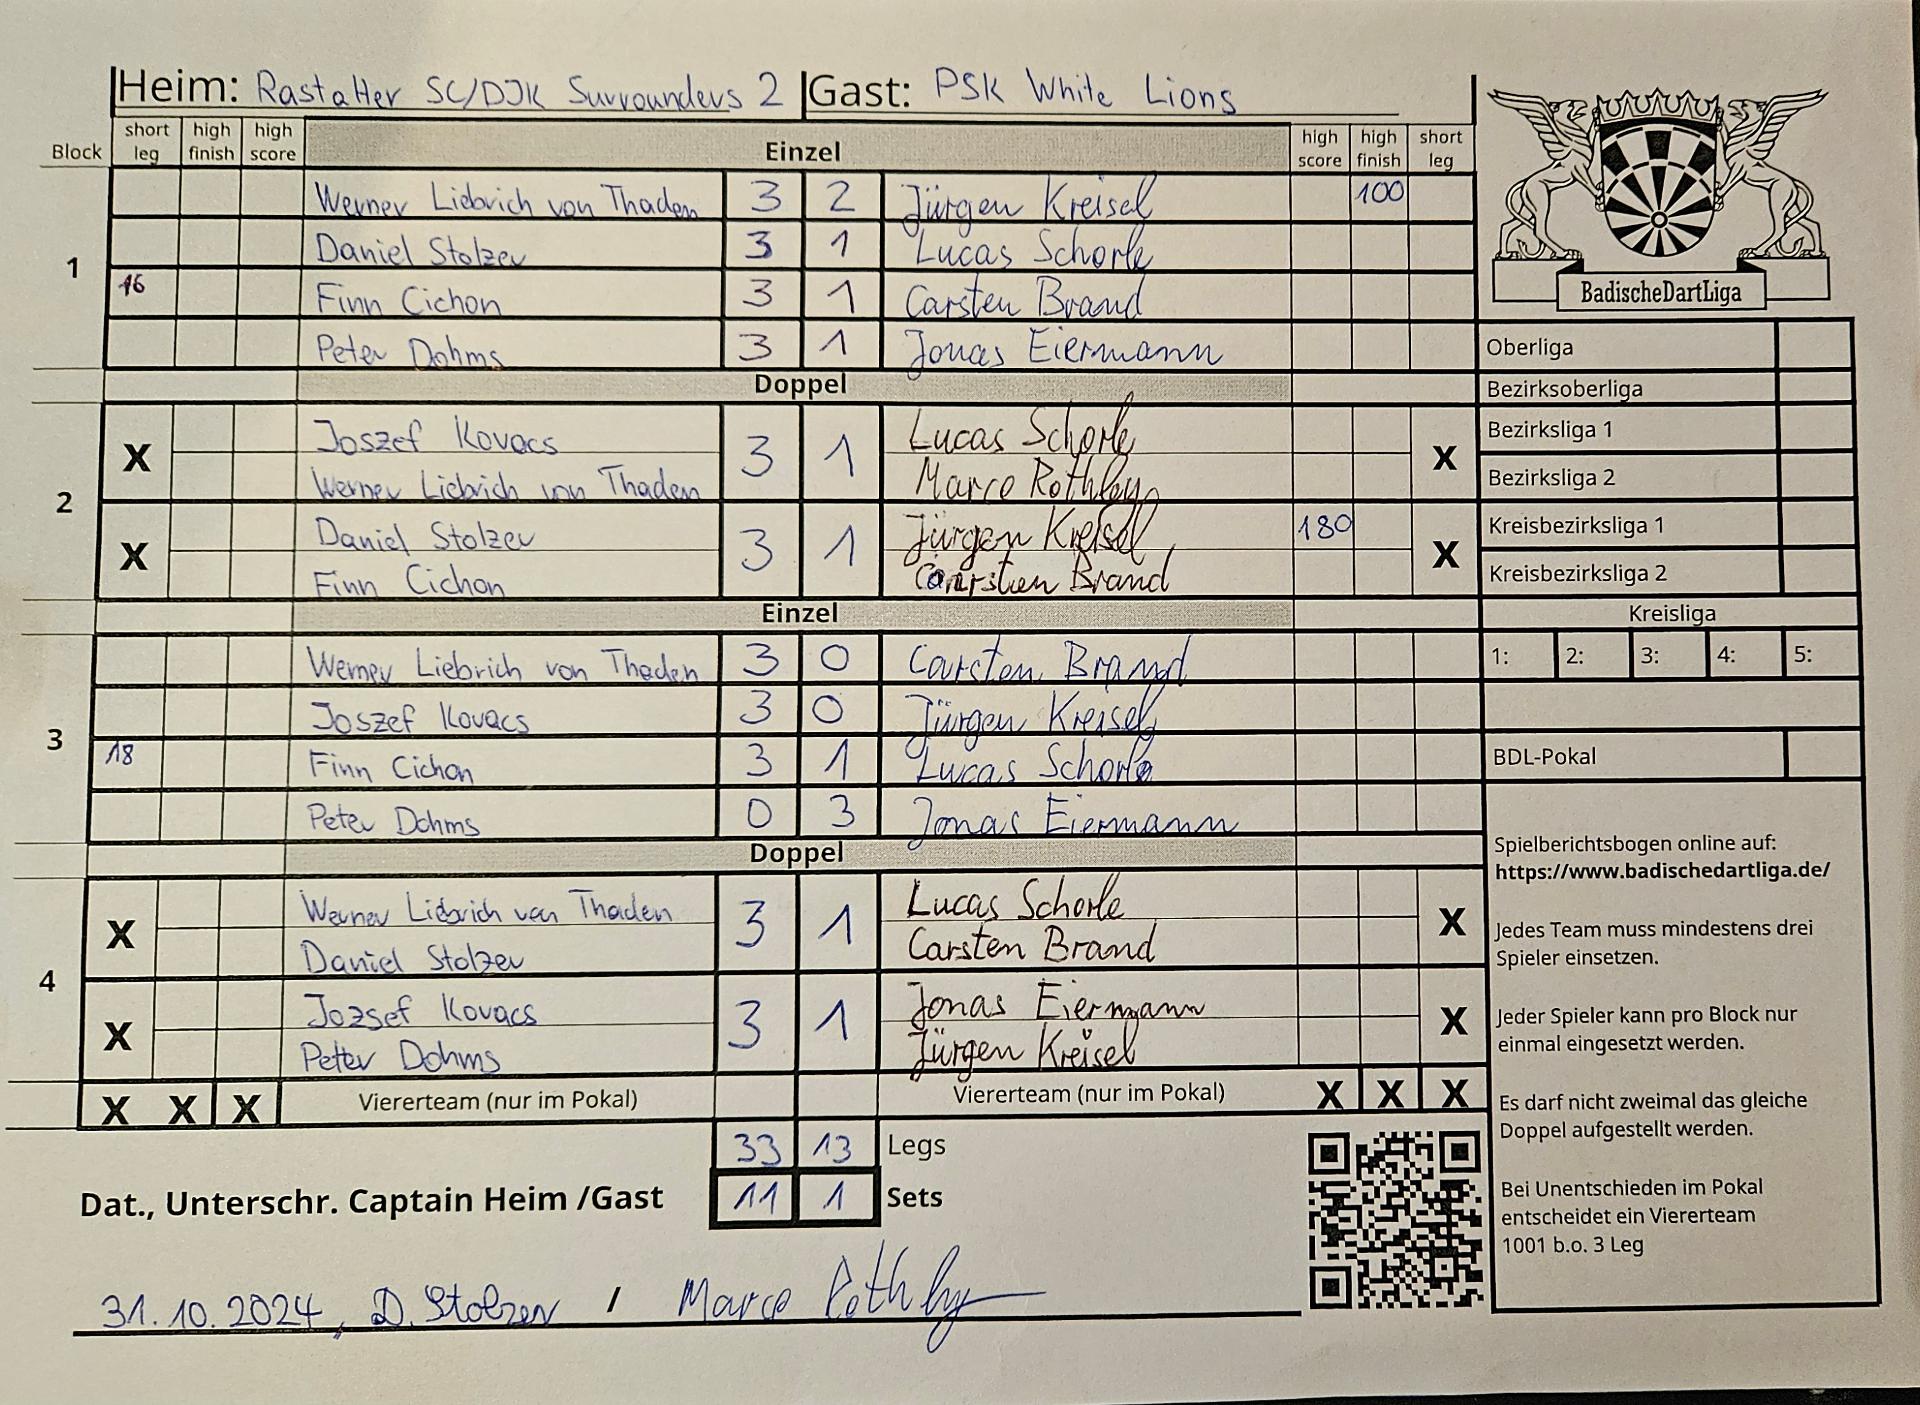 Heim: Rastatter SC/DJK Surrounders 2 Gast: PSK White Lions
Block short leg high finish high score Einzel high score high finish short leg
1
Werner Liebrich von Thaden 3 2 Jürgen Kreisel 100
Daniel Stolzer 3 1 Lucas Schorle
16 Finn Cichon 3 1 Carsten Brand
Peter Dohms 3 1 Jonas Eiermann
Doppel
2
X Joszef Kovacs 3 1 Lucas Schorle X
Werner Liebrich von Thaden Marco Rothley
X Daniel Stolzer 3 1 Jürgen Kreisel 180 X
Finn Cichon Carsten Brand
Einzel
3
Werner Liebrich von Thaden 3 0 Carsten Brand
Joszef Kovacs 3 0 Jürgen Kreisel
18 Finn Cichon 3 1 Lucas Schorle
Peter Dohms 0 3 Jonas Eiermann
Doppel
4
X Werner Liebrich von Thaden 3 1 Lucas Schorle X
Daniel Stolzer Carsten Brand
X Jozsef Kovacs 3 1 Jonas Eiermann X
Peter Dohms Jürgen Kreisel
X X X Viererteam (nur im Pokal) Viererteam (nur im Pokal) X X X
33 13 Legs
Dat., Unterschr. Captain Heim /Gast 11 1 Sets
31.10.2024, D. Stolzer / Marco Rothley
BadischeDartLiga
Oberliga
Bezirksoberliga
Bezirksliga 1
Bezirksliga 2
Kreisbezirksliga 1
Kreisbezirksliga 2
Kreisliga
1: 2: 3: 4: 5:
BDL-Pokal
Spielberichtsbogen online auf:
https://www.badischedartliga.de/
Jedes Team muss mindestens drei
Spieler einsetzen.
Jeder Spieler kann pro Block nur
einmal eingesetzt werden.
Es darf nicht zweimal das gleiche
Doppel aufgestellt werden.
Bei Unentschieden im Pokal
entscheidet ein Viererteam
1001 b.o. 3 Leg